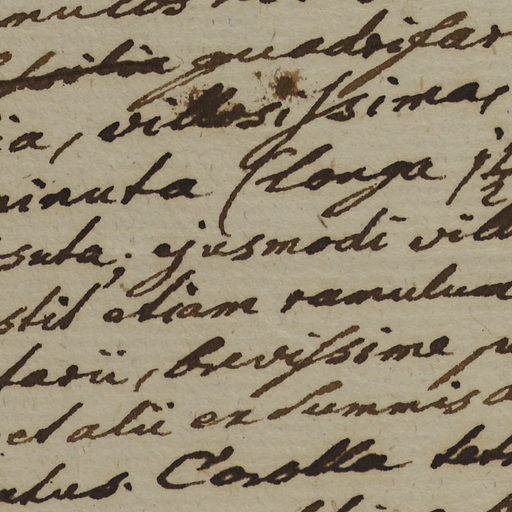 mulos
quadrifar
ia, villosissima,
minuta (longa
suta; ejusmodi vill
stit etiam ramulum
tarii, brevissime p
et alii ex summis a
atus. Corolla tet